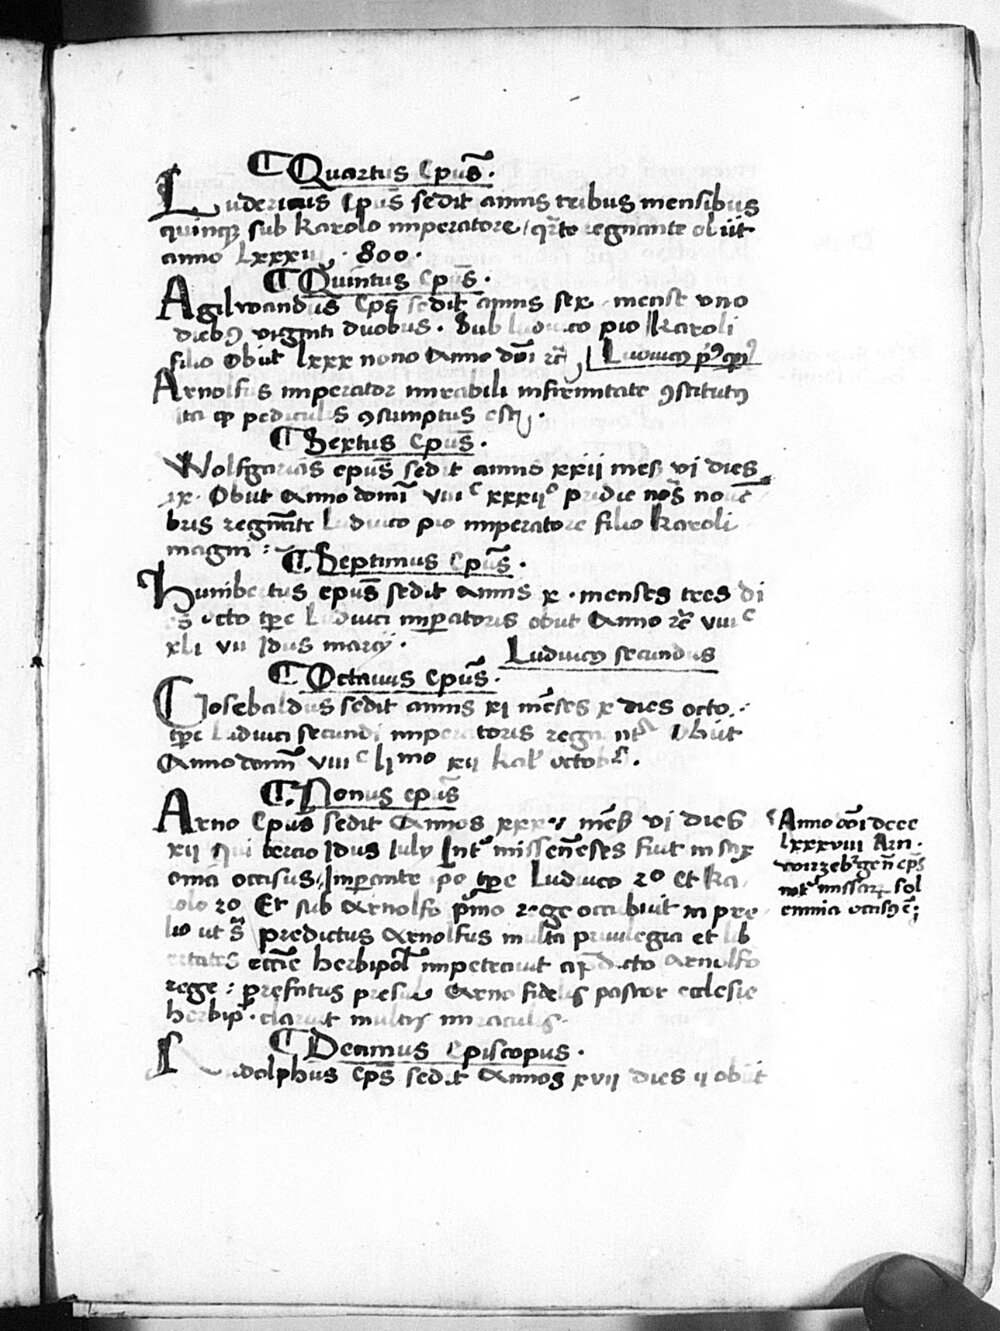 Quartus Epūs.
Ludericus Epūs sedit annis tribus mensibus
quinqꝫ sub Karolo imperatore / qͬto regnante obiit
anno lxxxiii · 800 ·
Quintus Epūs.
Agilwandus Epūs sedit annis sex · mense uno
diebꝰ viginti duobus. Sub luduico pio Karoli
filio Obiit lxxx nono Anno dn̄i rc̄
Luduicꝰ pͥꝰ
Arnolfus imperator mirabili infirmitate ꝯstitutꝰ
ita ꝙ pediculis ꝯsumptus est.
Sextus Epūs.
Wolfgarius epūs sedit annis xxii mēs vi dies
ix. Obiit Anno domī viiiᶜ xxxiiº pridie noās nouē
bris regnāte Luduico pio imperatore filio Karoli
magni :
Septimus Epūs.
Humbertus epūs sedit Annis x · menses tres di
es octo tp̄e Luduici imꝑatoris obiit Anno rc̄ viiiᶜ
xli vii Idus marcij.
Luduicꝰ secundus
Octauus Epūs.
Gosebaldus sedit annis xi mēses x dies octo.
tp̄e Luduici secundi imperatoris regnantͥs Obiit
Anno domī viiiᶜ liᵐᵒ xii kal' octob̄.
Nonus epūs
Arno Epūs sedit Annos xxx mēs vi dies
xii Qui tercio Idus July Intͬ missēs fiuit in sax
onia occisus / Imꝑante ip̄o tp̄e Luduico 2º et Ka
rolo 2º Et sub Arnolfo pͥmo rege occubuit in pre
lio ut s̄ predictus Arnolfus multa priuilegia et lib
ertates eccīe herbipol' impetrauit a p̄dicto Arnolfo
rege : prefatus presul Arno fidelis pastor ecclesie
herbip̄. claruit multis miraculis.
Anno dn̄i dccc
lxxxviii Arn.
epūs
intͬ missarꝝ sol
emnia occisꝰ ē;
Decimus Episcopus.
Rudolphus Epūs sedit Annos xvii dies ii obiit